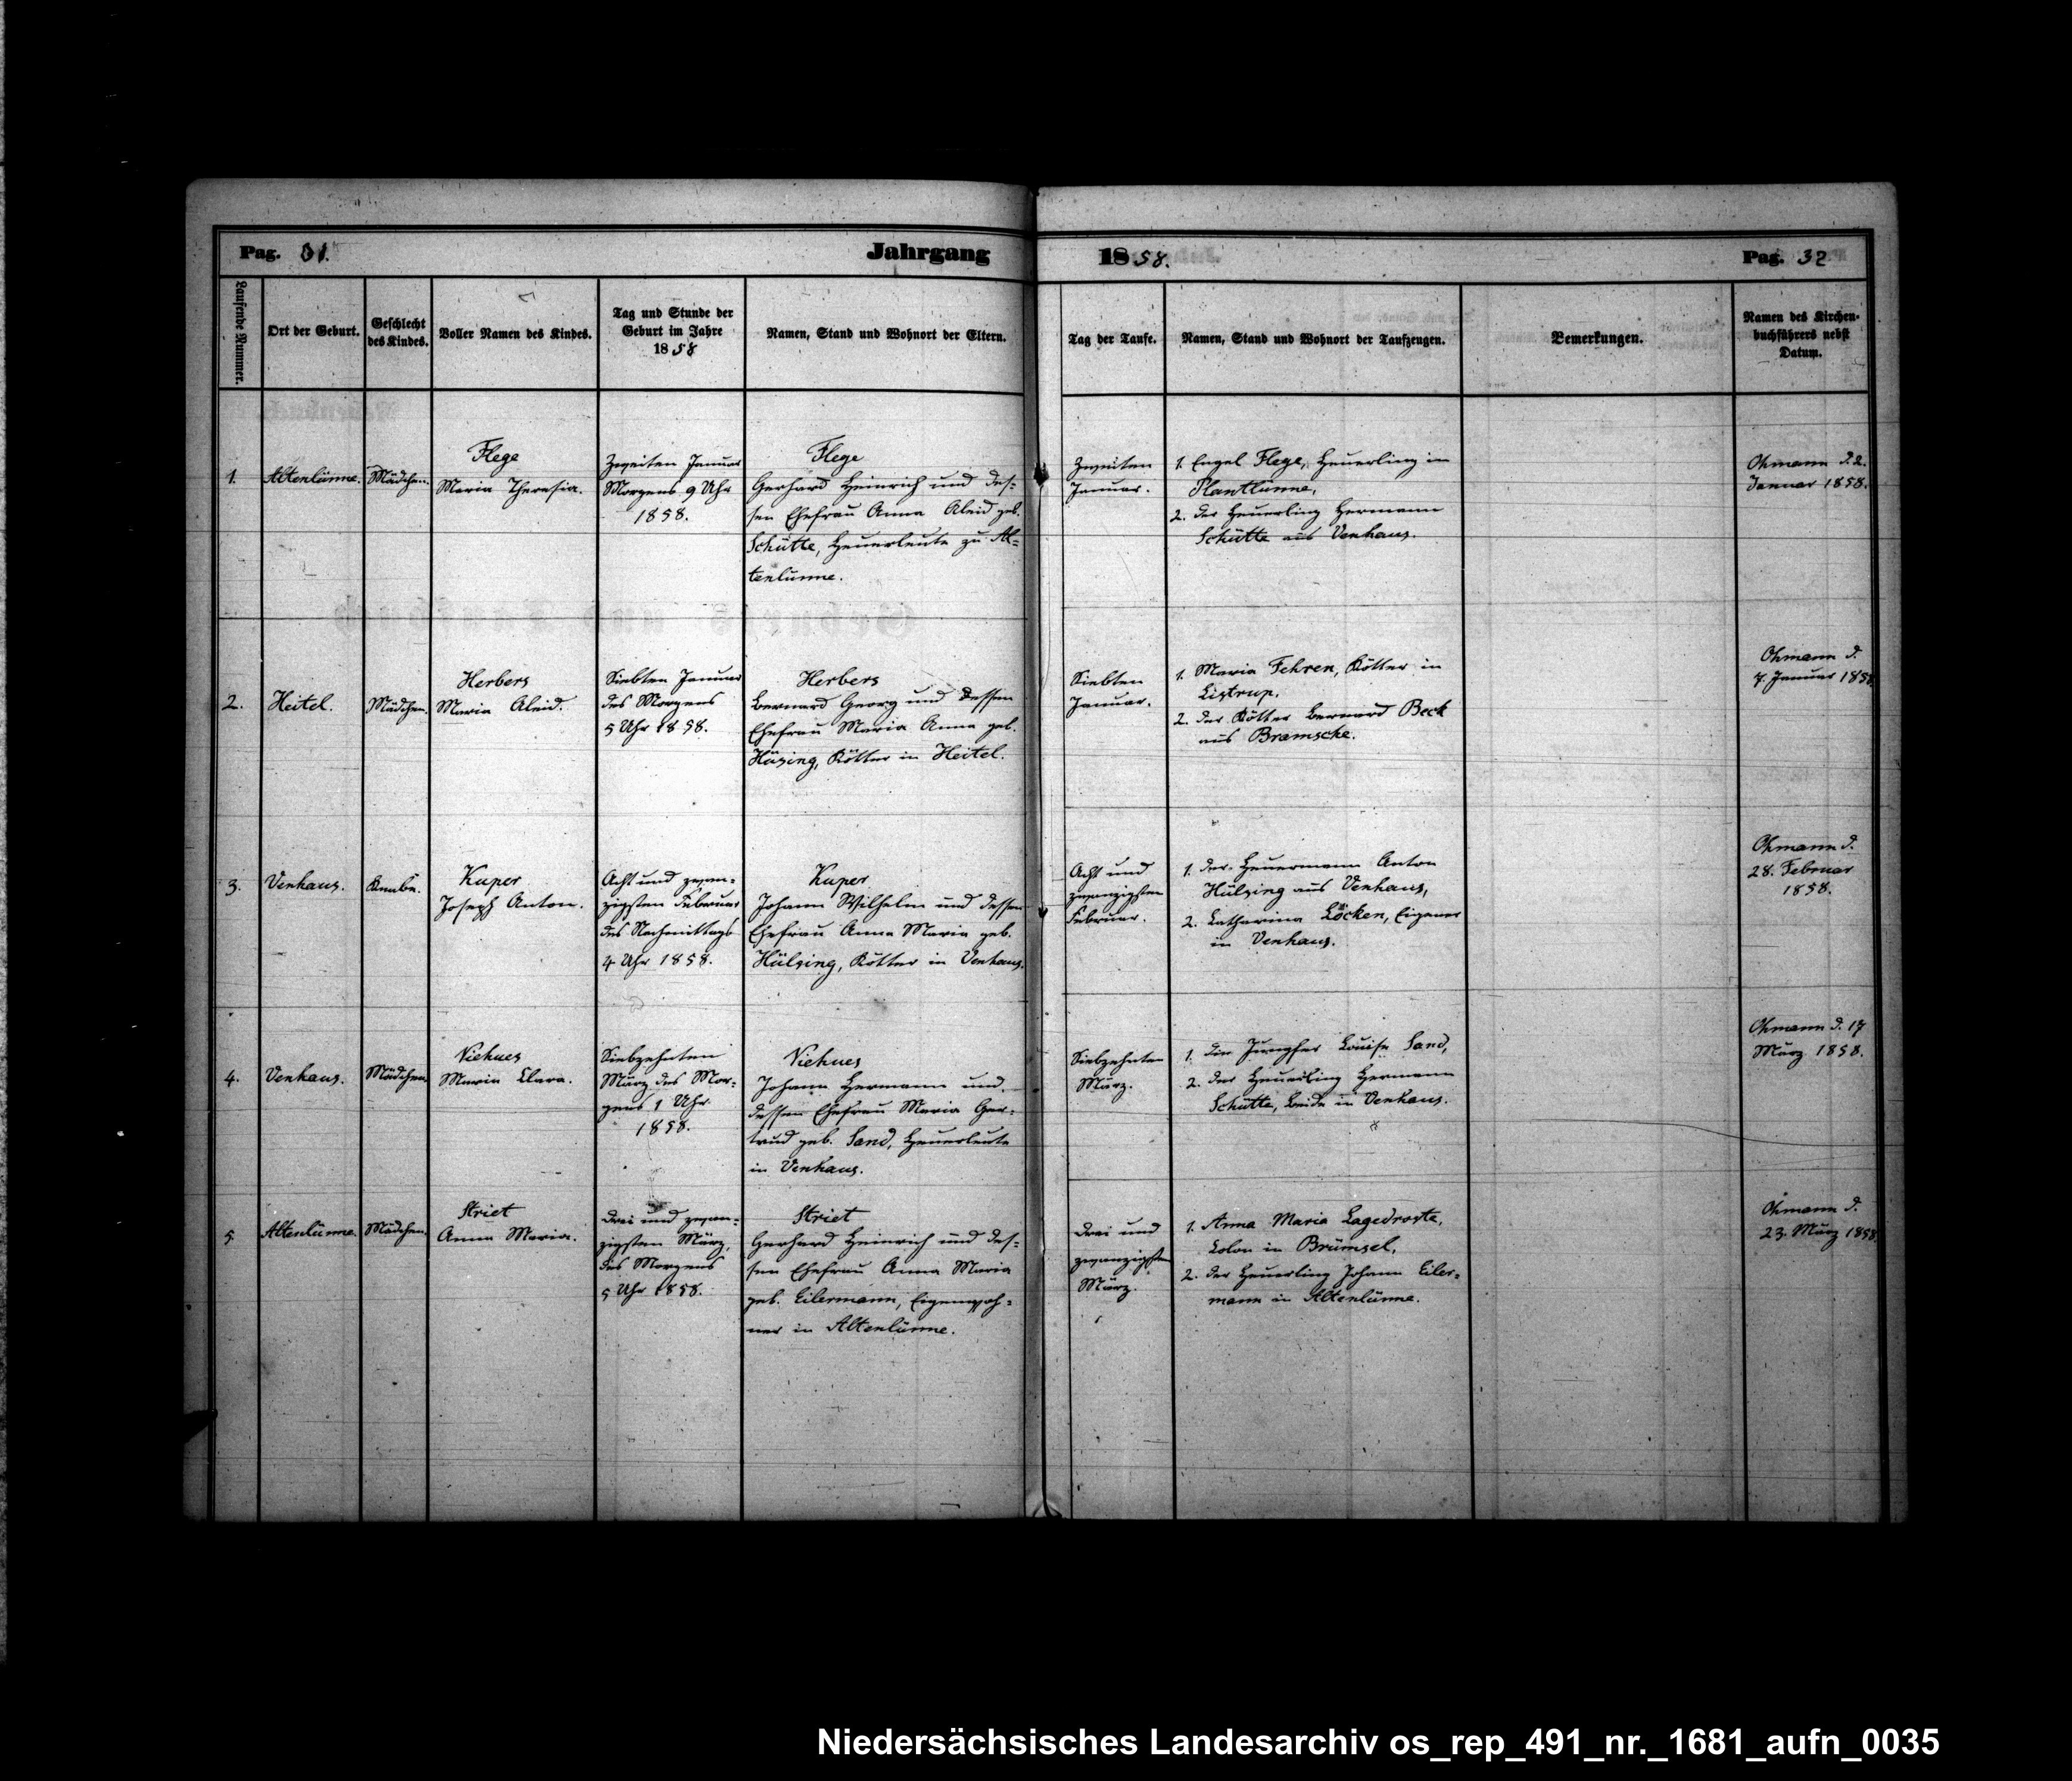 Pag. 31.
Jahrgang
1858.
Pag. 32
Laufende Nummer.
Ort der Geburt.
Geschlecht
des Kindes.
Voller Namen des Kindes.
Tag und Stunde der
Geburt im Jahre
1858
Namen, Stand und Wohnort der Eltern.
Tag der Taufe.
Namen, Stand und Wohnort der Taufzeugen.
Bemerkungen.
Namen des Kirchen-
buchführers nebst
Datum.
1.
Altenlünne.
Mädchen.
Flege
Maria Theresia.
Zweiten Januar
Morgens 9 Uhr
1858.
Flege
Gerhard Heinrich und des-
sen Ehefrau Anna Aleid geb.
Schütte, Heuerleute zu Al-
tenlünne.
Zweiten
Januar.
1. Engel Flege, Heuerling in
Plantlünne,
2. der Heuerling Hermann
Schütte aus Venhaus.
Ohmann d. 2.
Januar 1858.
2.
Heitel.
Mädchen.
Herbers
Maria Aleid.
Siebten Januar
des Morgens
5 Uhr 1858.
Herbers
Bernard Georg und dessen
Ehefrau Maria Anna geb.
Hüsing, Kötter in Heitel.
Siebten
Januar.
1. Maria Fehren, Kötter in
Listrup,
2. der Kötter Bernard Beck
aus Bramsche.
Ohmann d.
7. Januar 1858
3.
Venhaus.
Knabe.
Kuper
Joseph Anton.
Acht und zwan-
zigsten Februar
des Nachmittags
4 Uhr 1858.
Kuper
Johann Wilhelm und dessen
Ehefrau Anna Maria geb.
Hülsing, Kötter in Venhaus.
Acht und
zwanzigsten
Februar.
1. der Heuermann Anton
Hülsing aus Venhaus,
2. Catharina Löcken, Eigener
in Venhaus.
Ohmann d.
28. Februar
1858.
4.
Venhaus.
Mädchen.
Niehues
Maria Clara.
Siebzehnten
März des Mor-
gens 1 Uhr
1858.
Niehues
Johann Hermann und
dessen Ehefrau Maria Ger-
trud geb. Sand, Heuerleute
in Venhaus.
Siebzehnten
März.
1. die Jungfer Louise Sand,
2. der Heuerling Hermann
Schütte, beide in Venhaus.
Ohmann d. 17
März 1858.
5
Altenlünne.
Mädchen.
Striet
Anna Maria.
Drei und zwan-
zigsten März,
des Morgens
5 Uhr 1858.
Striet
Gerhard Heinrich und des-
sen Ehefrau Anna Maria
geb. Eilermann, Eigenwoh-
ner in Altenlünne.
Drei und
zwanzigsten
März.
1. Anna Maria Lagedroste,
Colon in Brümsel,
2. der Heuerling Johann Eiler-
mann in Altenlünne.
Ohmann d.
23. März 1858.
Niedersächsisches Landesarchiv os_rep_491_nr._1681_aufn_0035